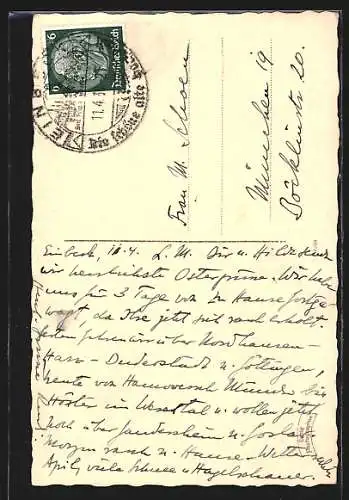 6
Deutsches Reich
11.4.3
Die schöne alte
Frau M. Schoen
München 19
Böcklinstr 20.
Einbeck, 11.4. L. M. Dir u. Hilde
wir herzlichste Ostergrüsse. Wir haben
uns für 3 Tage von zu Hause fortge-
wagt, da Ilse jetzt sich rasch erholt.
fuhren wir über Nordhausen-
Harz - Duderstadt u. Göttingen,
heute von Hannoversch Münden bis
Höxter im Wesertal u. wollen jetzt
noch über Gandersheim u. Goslar
Morgen nach u. Hause. Wetter
April, viele Schnee u. Hagelschauer.